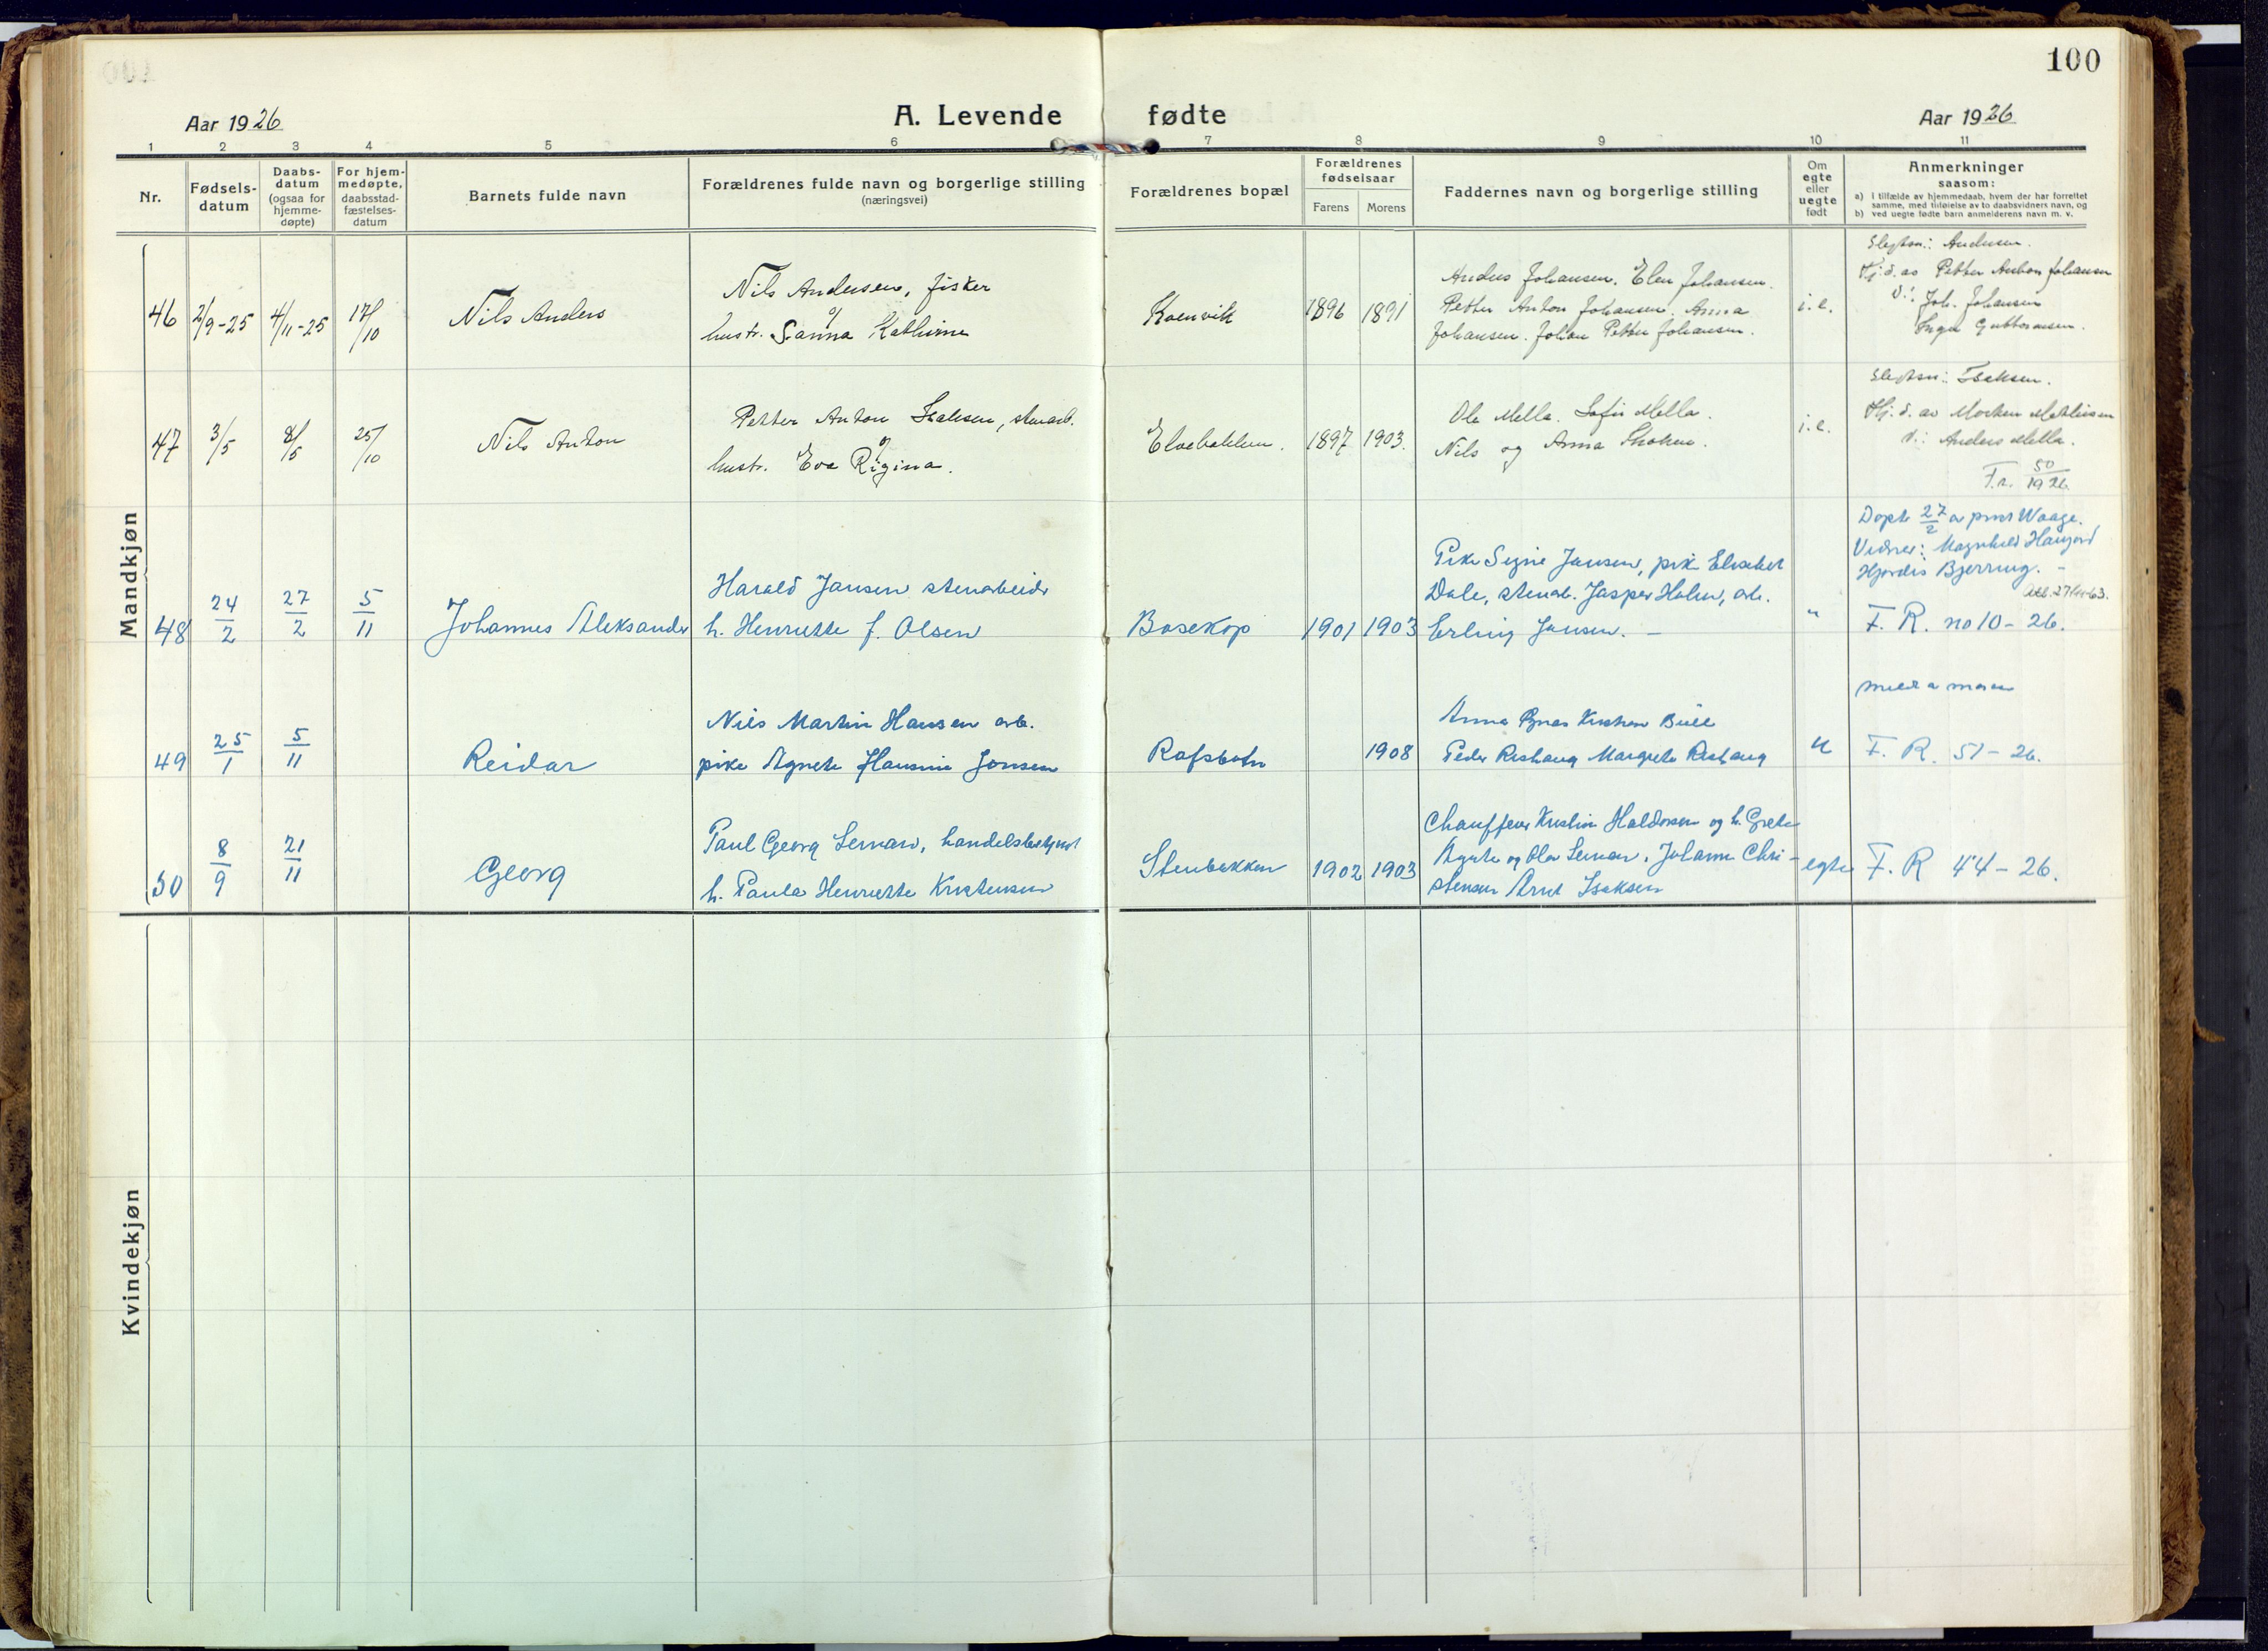 100
Aar 1926
A. Levende fødte
Aar 1926
1 2 3 4 5 6 7 8 9 10 11
Nr.
Fødsels-
datum
Daabs-
datum
(ogsaa for
hjemme-
døpte)
For hjem-
medøpte,
daabsstad-
fæstelses-
datum
Barnets fulde navn
Forældrenes fulde navn og borgerlige stilling
(næringsvei)
Forældrenes bopæl
Forældrenes
fødselsaar
Farens
Morens
Faddernes navn og borgerlige stilling
Om
egte
eller
uegte
født
Anmerkninger
saasom:
a) I tilfælde av hjemmedaab, hvem der har forrettet
samme, med tilføielse av to daabsvidners navn, og
b) ved uegte fødte barn anmelderens navn m. v.
Mandkjøn
46 2/9-25 4/11-25 17/10
Nils Anders
Nils Andersen, fisker
og
hustr. Sanna Kathrine
Kvenvik
1896 1891
Anders Johansen. Elen Johansen.
Petter Anton Johansen. Anna
Johansen. Johan Petter Johansen.
i.e.
Slegtsn.: Andersen.
Hj.d. av Petter Anton Johansen
V.: Joh. Johansen
Inga
47 3/5 8/5 25/10
Nils Anton
Petter Anton Isaksen, stenarb.
og
hustr. Eva Rigina.
Elvebakken.
1897 1903.
Ola Mella. Sofie Mella.
Nils og Anna
i.e.
Slegtsn.: Isaksen.
Hj.d. av Morten Mathisen
V.: Anders Mella.
F.r. 50/1926
48 24/2 27/2 5/11
Johannes Aleksander
Harald Jansen stenarbeider
h. Henriette f. Olsen
Bosekop
1901 1903
Pike Signe Jansen, pike Elisabet
Dale, stenarb. Jasper Holm, arb.
Erling Jansen. –
"
Døpt 27/2 a prest Waage.
Vidner: Magnhild
Hjørdis Bjerring. –
F. R. no 10 – 26.
49 25/1 5/11
Reidar
Nils Martin Hansen arb.
pike Agnete Hansine Jonsen
Rafsbotn
1908
Anna Kristian Bull
Peder Reshaug Margrete Reshaug
u
meldt a moren
F. R. 51 – 26.
50 8/9 21/11
Georg
Paul Georg handelsbestyrer
h. Paula Henriette Kristensen
Stenbakken
1902 1903
Chauffeur Kristian Haldorsen og h. Grete
Agnete og Olav Johanne Chri-
stensen Arnt Isaksen
egte
F. R 44 – 26.
Kvindekjøn